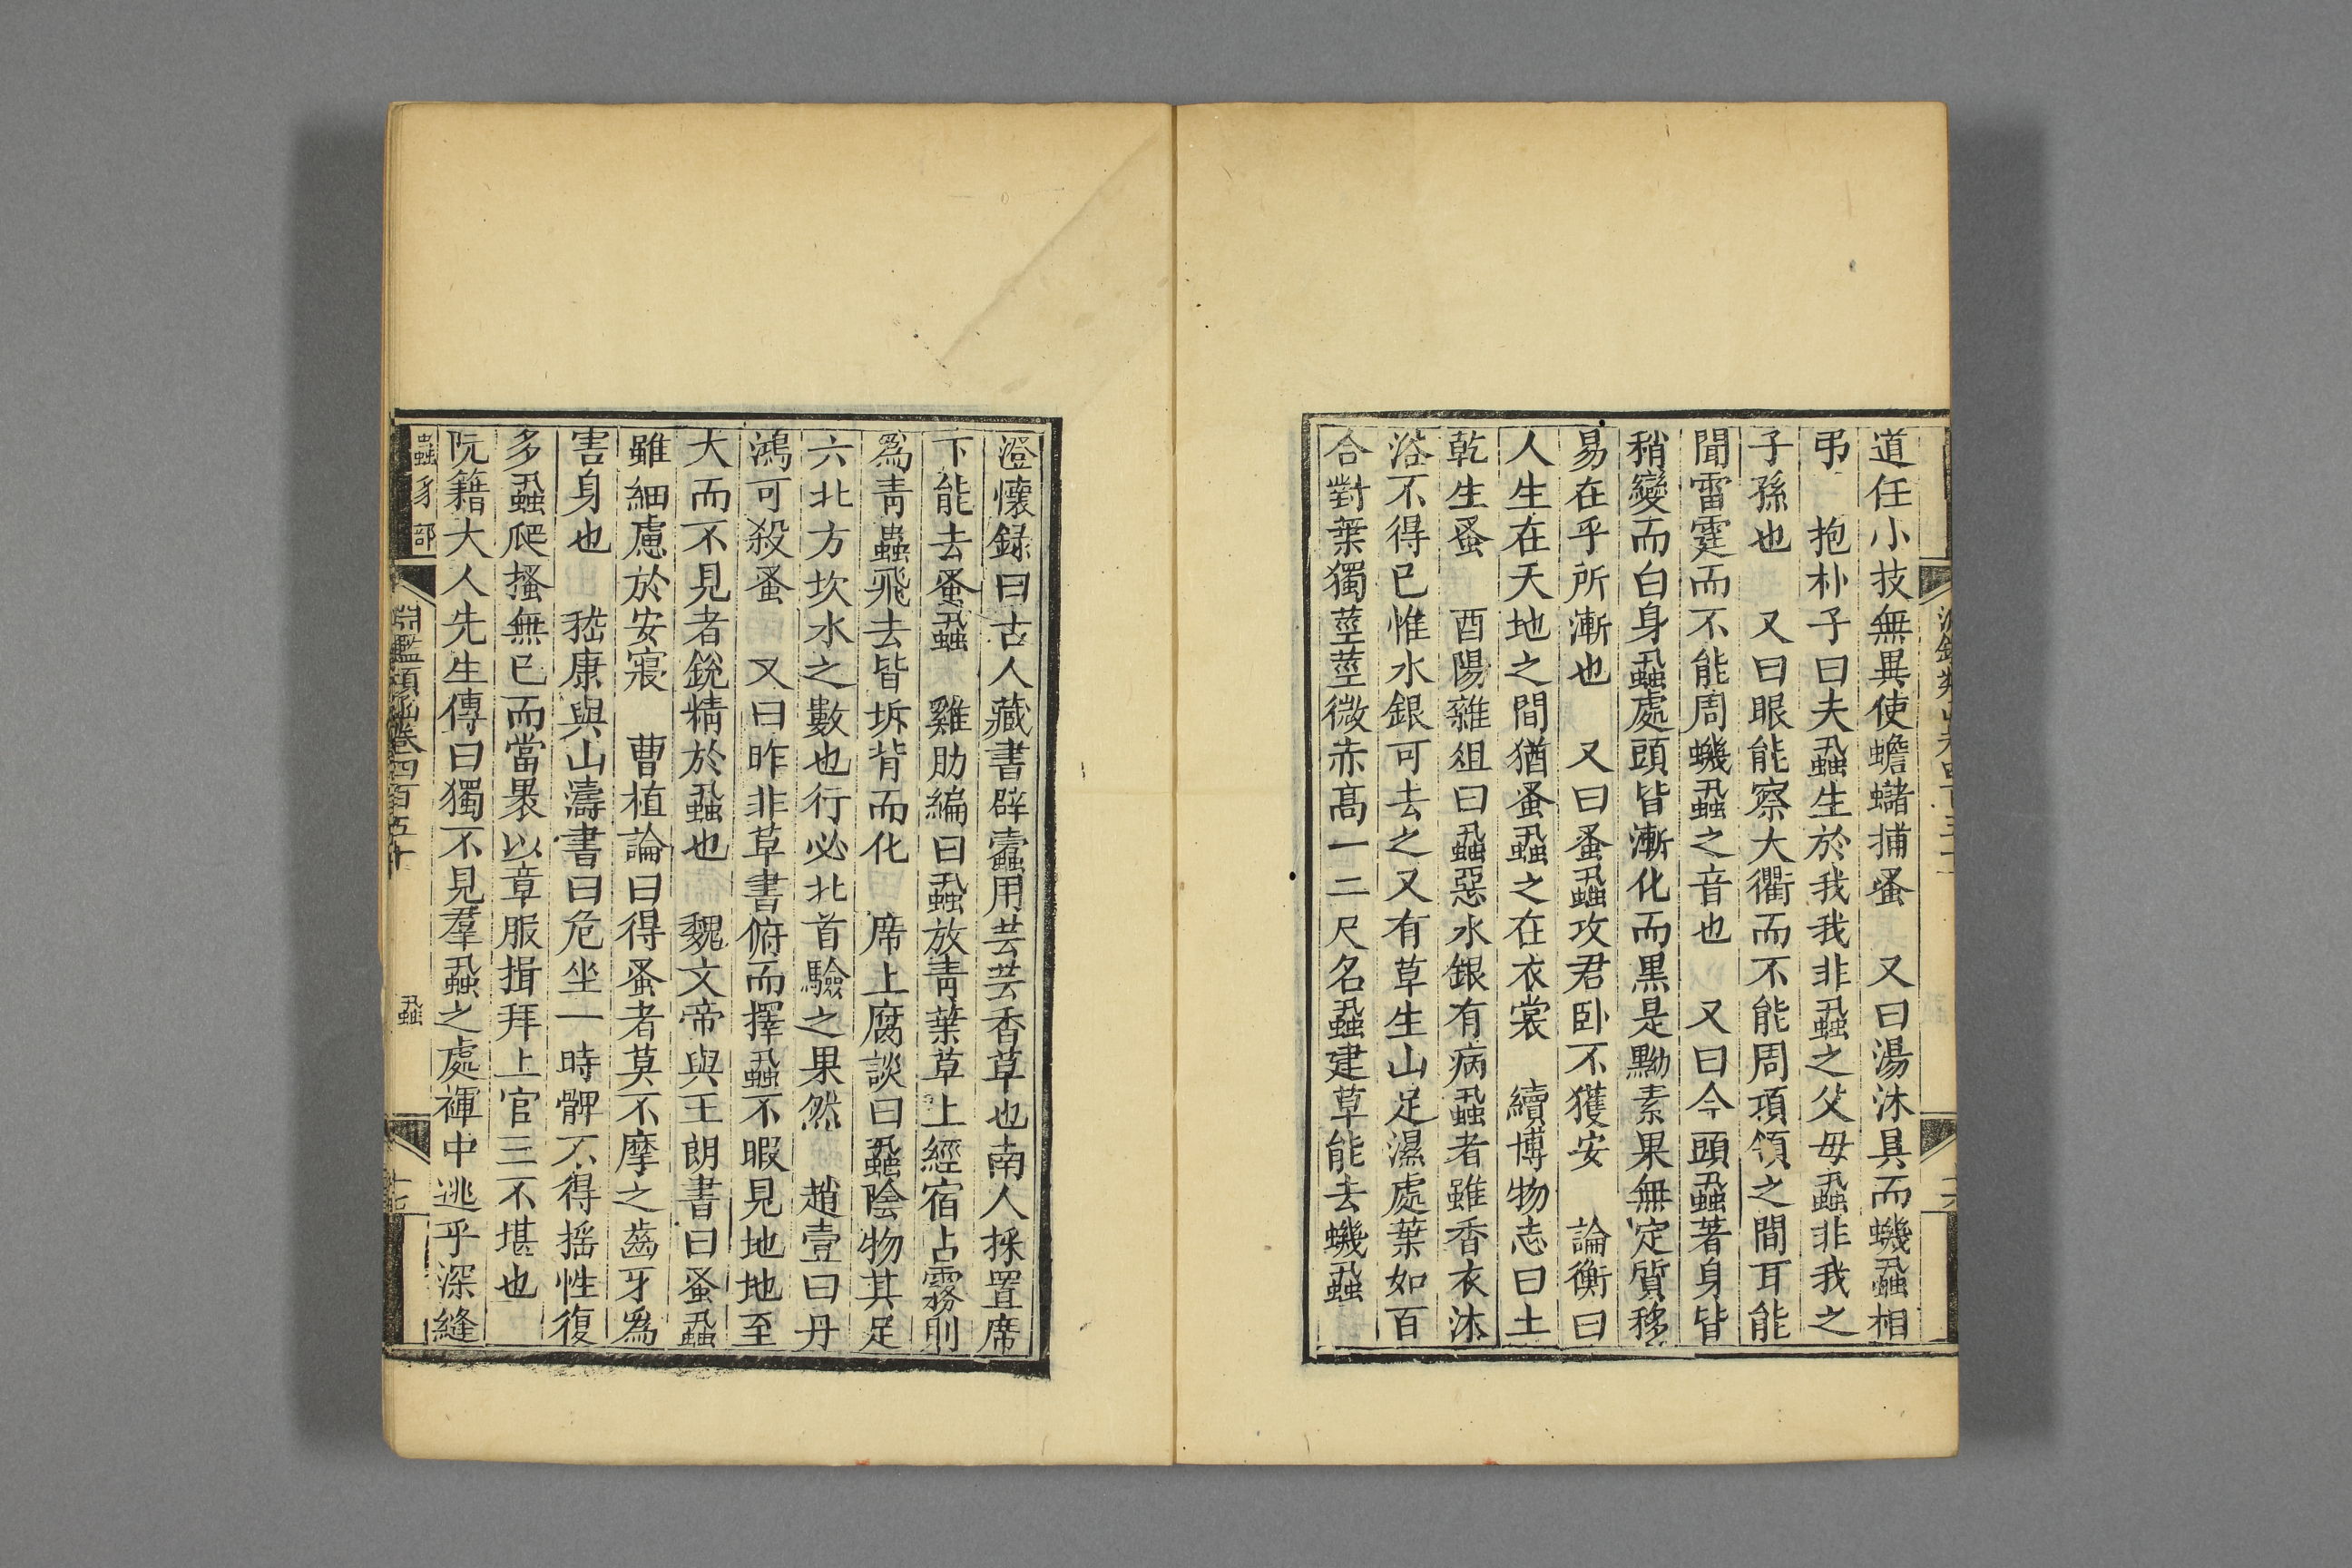 道任小技無異使蟾蠩捕蚤　又曰湯沐具而蟣蝨相
弔　抱朴子曰夫蝨生於我我非蝨之父毋蝨非我之
子孫也　又曰眼能察大衢而不能周項領之間耳能
聞雷霆而不能周蟣蝨之音也　又曰今頭蝨著身皆
稍變而白身蝨處頭皆漸化而黑是黝素果無定質移
易在乎所漸也　又曰蚤蝨攻君卧不獲安　論衡曰
人生在天地之間猶蚤蝨之在衣裳　續博物志曰土
乾生蚤　酉陽雜俎曰蝨惡水銀有病蝨者雖香衣沐
浴不得已惟水銀可去之又有草生山足濕處葉如百
合對葉獨莖莖微赤高一二尺名蝨建草能去蟣蝨
澄懷録曰古人藏書辟蠹用芸芸香草也南人採置席
下能去蚤蝨　雞肋編曰蝨放青葉草上經宿占霧則
爲青蟲飛去皆坼背而化　席上腐談曰蝨陰物其足
六北方坎水之數也行必北首驗之果然　趙壹曰丹
鴻可殺蚤　又曰昨非草書俯而擇蝨不暇見地地至
大而不見者銳精於蝨也　魏文帝與王朗書曰蚤蝨
雖細慮於安寢　曹植論曰得蚤者莫不摩之齒牙爲
害身也　嵇康與山濤書曰危坐一時髀不得搖性復
多蝨爬搔無已而當褁以章服揖拜上官三不堪也
阮籍大人先生傳曰獨不見羣蝨之處褌中逃乎深縫
蟲豸部
淵鑑類函卷四百五十
蝨
十七